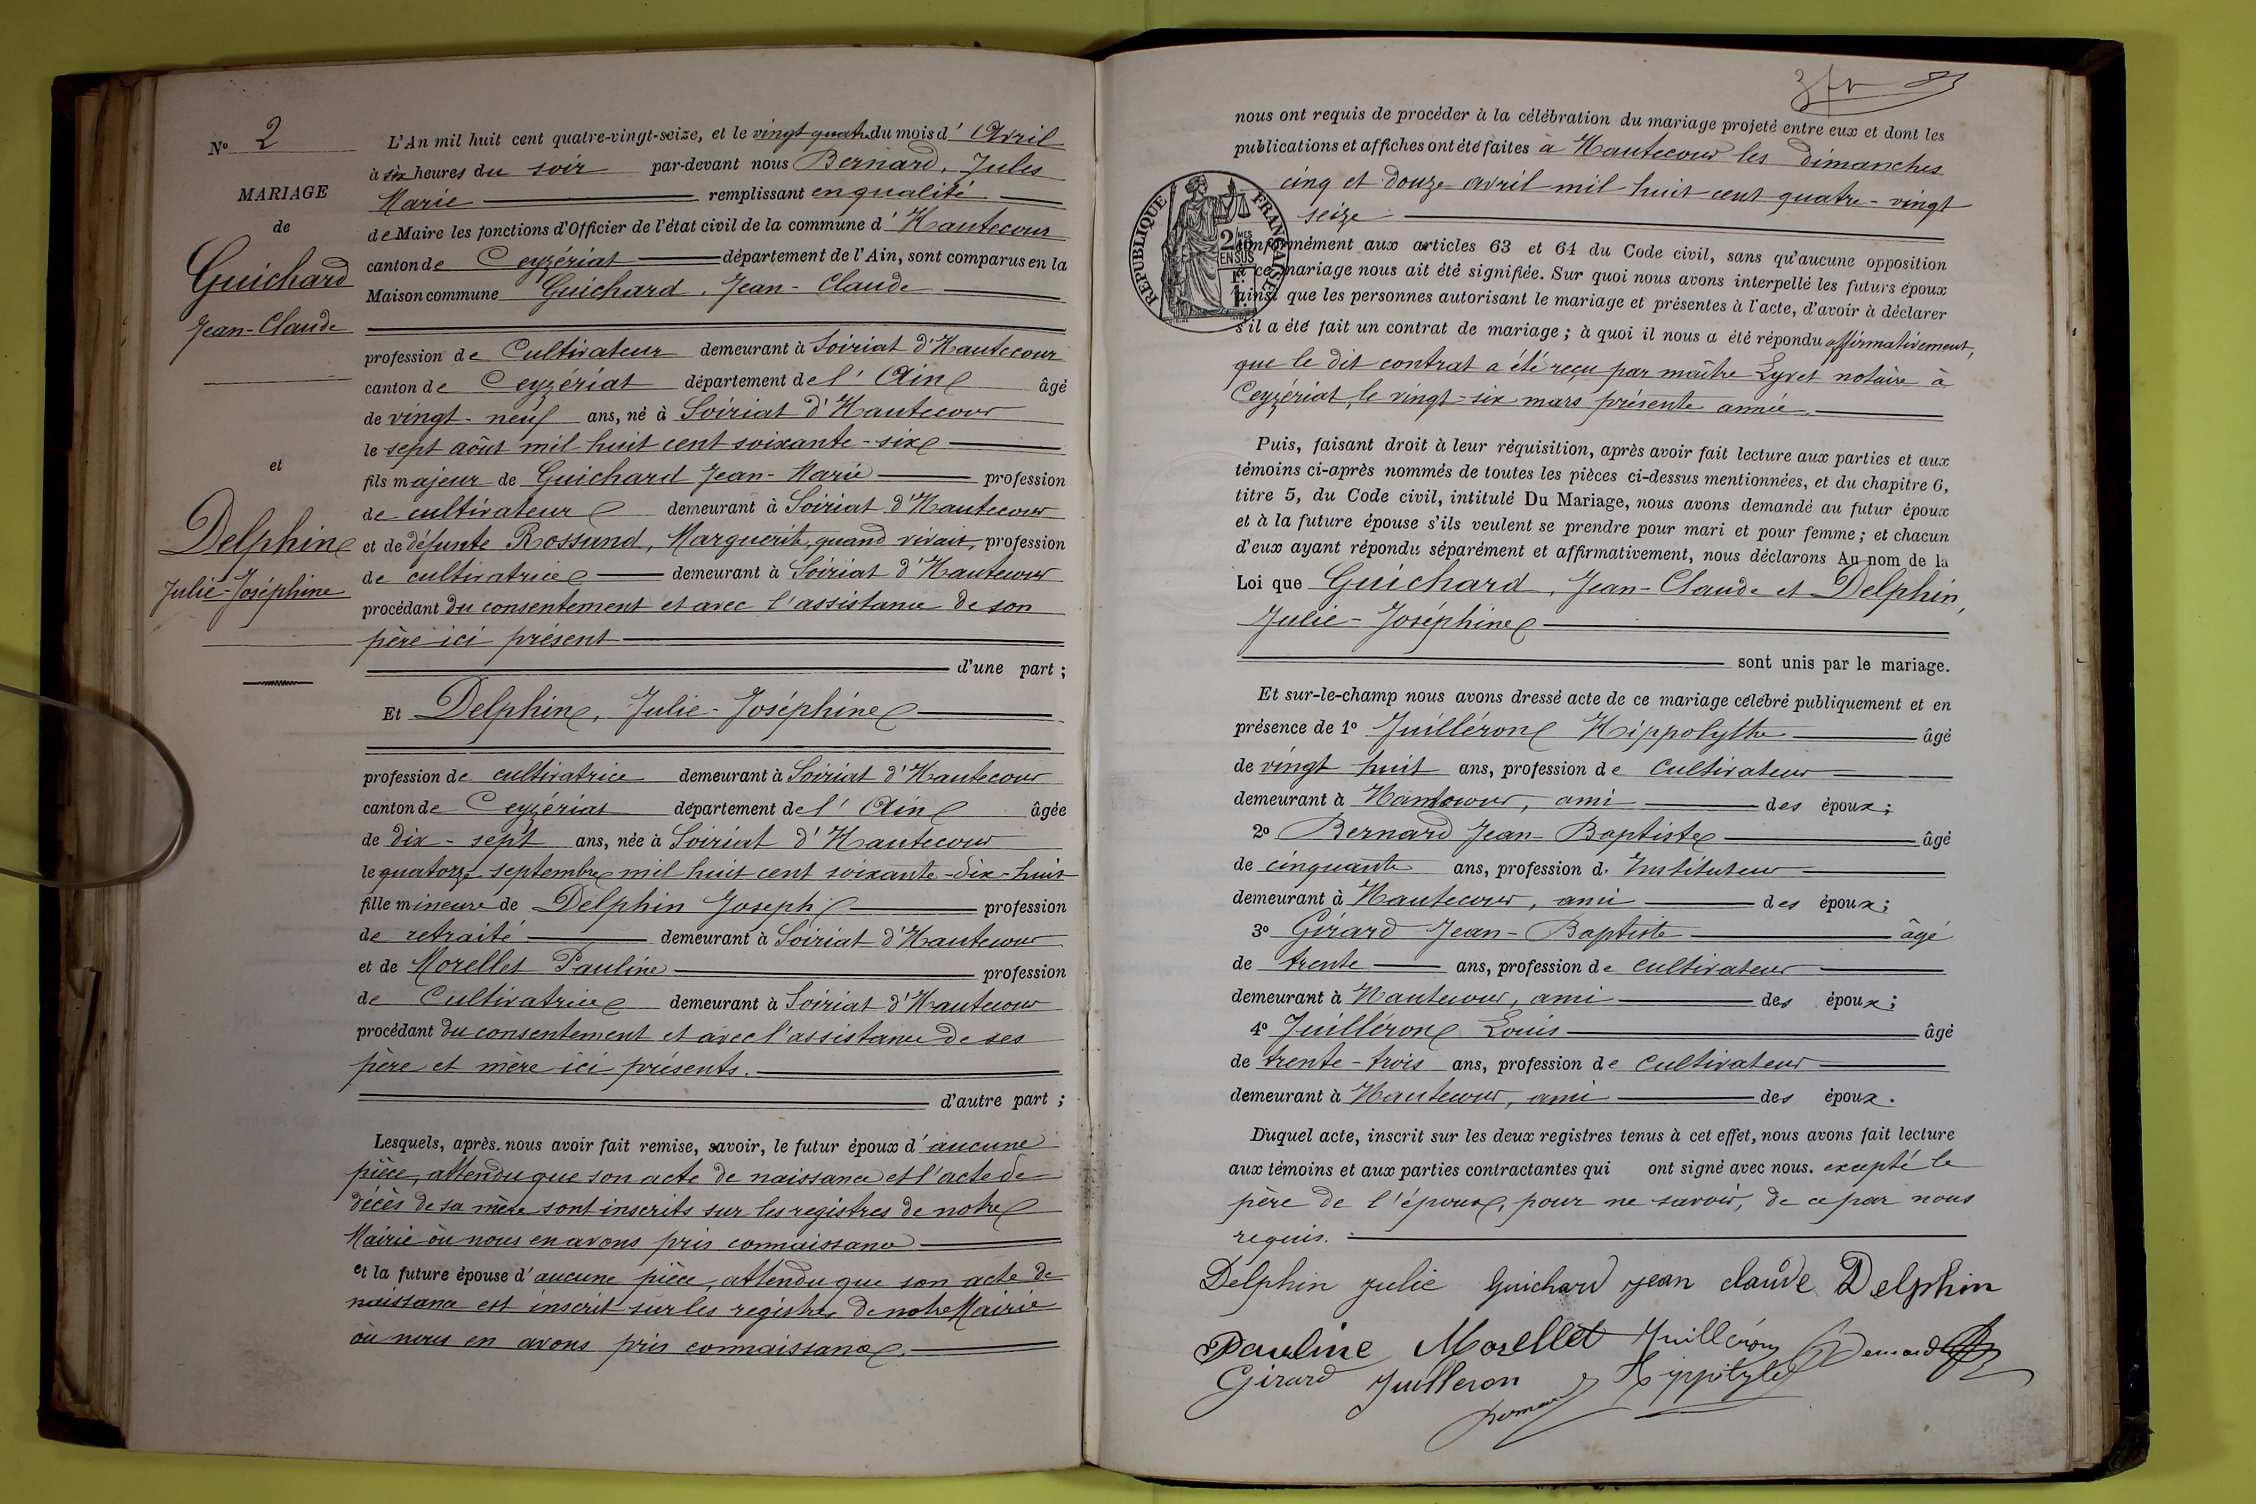 N° 2
MARIAGE
de
Guichard
Jean-Claude
et
Delphin
Julie-Joséphine
L'An mil huit cent quatre-vingt-seize, et le vingt quatre du mois d'Avril
à six heures du soir par-devant nous Bernard, Jules
Marie remplissant en qualité
de Maire les fonctions d'Officier de l'état civil de la commune d'Hautecour
canton de Ceyzériat département de l'Ain, sont comparus en la
Maison commune Guichard, Jean-Claude
profession de Cultivateur demeurant à Soiriat d'Hautecour
canton de Ceyzériat département de l'Ain âgé
de vingt-neuf ans, né à Soiriat d'Hautecour
le sept août mil huit cent soixante-six
fils majeur de Guichard Jean-Marie profession
de cultivateur demeurant à Soiriat d'Hautecour
et de défunte Rossand, Marguerite, quand vivait, profession
de cultivatrice demeurant à Soiriat d'Hautecour
procédant du consentement et avec l'assistance de son
père ici présent
d'une part ;
Et Delphin, Julie-Joséphine
profession de cultivatrice demeurant à Soiriat d'Hautecour
canton de Ceyzériat département de l'Ain âgée
de dix-sept ans, née à Soiriat d'Hautecour
le quatorze septembre mil huit cent soixante-dix-huit
fille mineure de Delphin Joseph profession
de retraité demeurant à Soiriat d'Hautecour
et de Morellet Pauline profession
de Cultivatrice demeurant à Soiriat d'Hautecour
procédant du consentement et avec l'assistance de ses
père et mère ici présents.
d'autre part ;
Lesquels, après nous avoir fait remise, savoir, le futur époux d'aucune
pièce, attendu que son acte de naissance et l'acte de
décès de sa mère sont inscrits sur les registres de notre
Mairie où nous en avons pris connaissance
et la future épouse d'aucune pièce, attendu que son acte de
naissance est inscrit sur les registres de notre Mairie
où nous en avons pris connaissance.
nous ont requis de procéder à la célébration du mariage projeté entre eux et dont les
publications et affiches ont été faites à Hautecour les dimanches
cinq et douze avril mil huit cent quatre-vingt
seize
RÉPUBLIQUE FRANÇAISE
2 MES EN SUS
conformément aux articles 63 et 64 du Code civil, sans qu'aucune opposition
à ce mariage nous ait été signifiée. Sur quoi nous avons interpellé les futurs époux
ainsi que les personnes autorisant le mariage et présentes à l'acte, d'avoir à déclarer
s'il a été fait un contrat de mariage ; à quoi il nous a été répondu affirmativement,
que le dit contrat a été reçu par maître Lyvet notaire à
Ceyzériat, le vingt-six mars présente année.
Puis, faisant droit à leur réquisition, après avoir fait lecture aux parties et aux
témoins ci-après nommés de toutes les pièces ci-dessus mentionnées, et du chapitre 6,
titre 5, du Code civil, intitulé Du Mariage, nous avons demandé au futur époux
et à la future épouse s'ils veulent se prendre pour mari et pour femme ; et chacun
d'eux ayant répondu séparément et affirmativement, nous déclarons Au nom de la
Loi que Guichard, Jean-Claude et Delphin,
Julie-Joséphine
sont unis par le mariage.
Et sur-le-champ nous avons dressé acte de ce mariage célébré publiquement et en
présence de 1° Juilléron Hippolythe âgé
de vingt huit ans, profession de cultivateur
demeurant à Hautecour, ami des époux ;
2° Bernard Jean-Baptiste âgé
de cinquante ans, profession d'Instituteur
demeurant à Hautecour, ami des époux ;
3° Gérard Jean-Baptiste âgé
de trente ans, profession de cultivateur
demeurant à Hautecour, ami des époux ;
4° Juilléron Louis âgé
de trente-trois ans, profession de cultivateur
demeurant à Hautecour, ami des époux.
Duquel acte, inscrit sur les deux registres tenus à cet effet, nous avons fait lecture
aux témoins et aux parties contractantes qui ont signé avec nous. excepté le
père de l'époux, pour ne savoir, de ce par nous
requis.
Delphin julie Guichard jean claude Delphin
Pauline Morellet Juilléron Bernard
Girard Juilleron Hippolyte